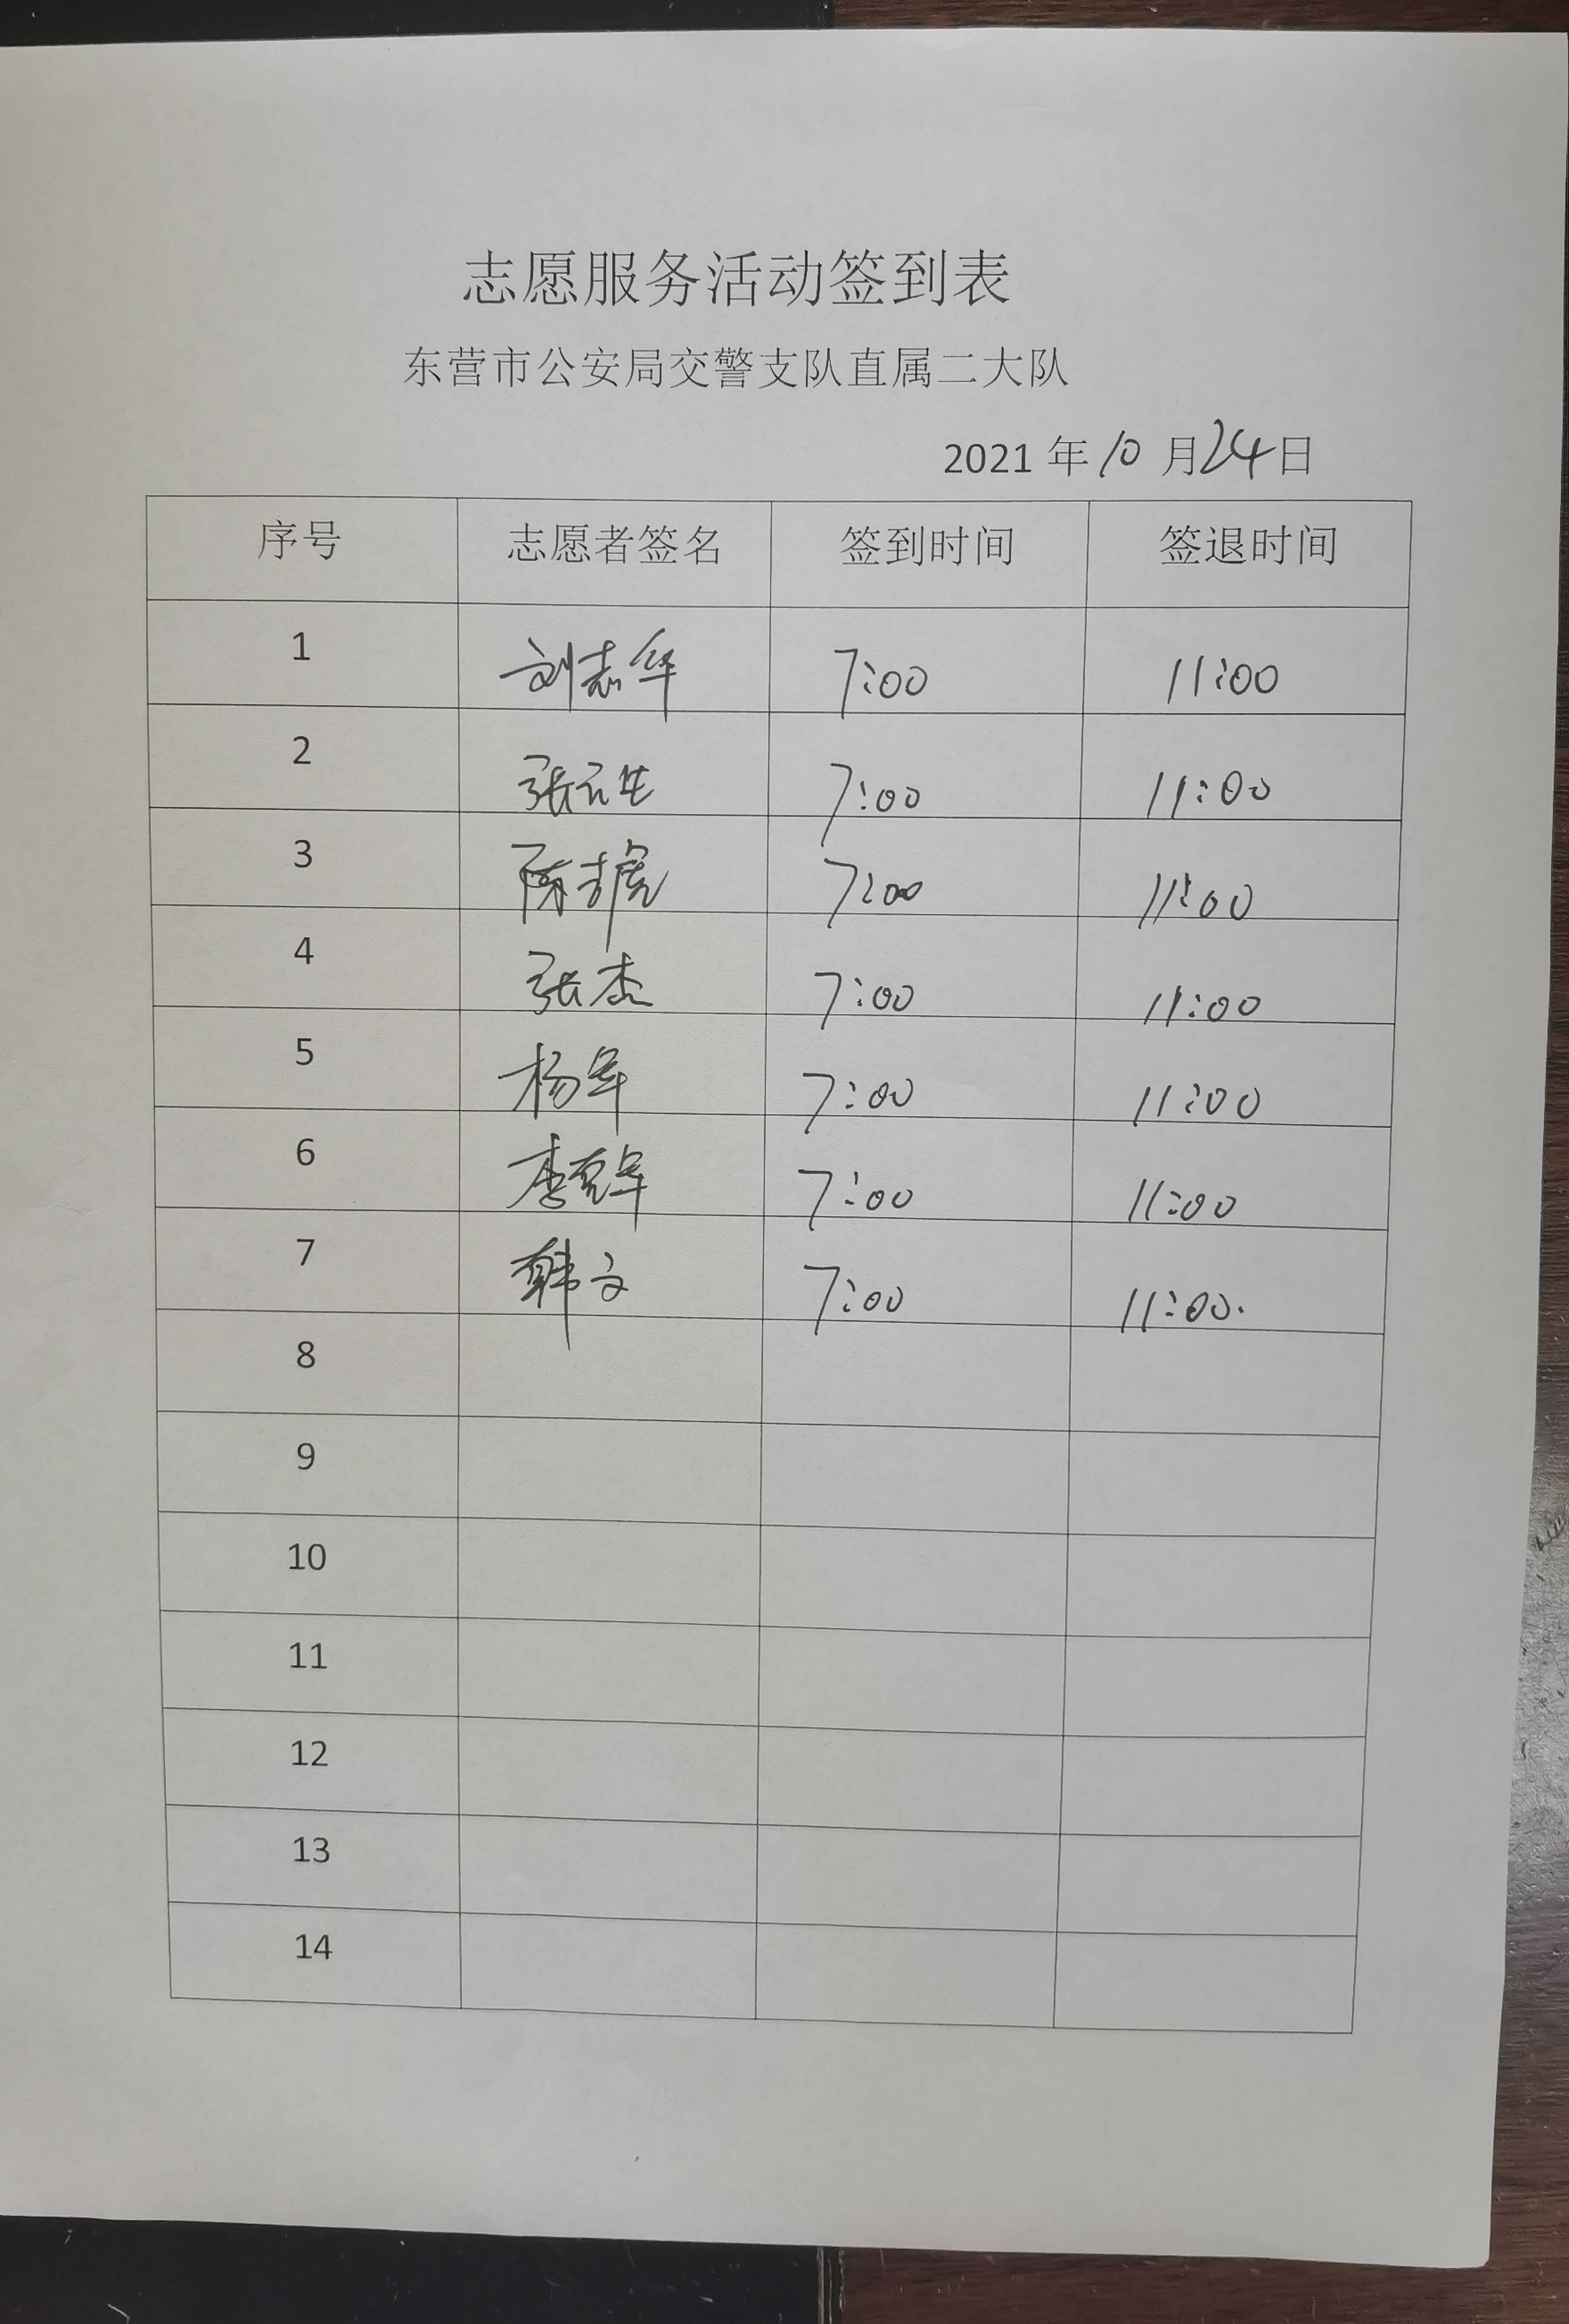 志愿服务活动签到表
东营市公安局交警支队直属二大队
2021 年 10 月 24 日
序号 志愿者签名 签到时间 签退时间
1 刘志华 7:00 11:00
2 张元生 7:00 11:00
3 陈 虎 7:00 11:00
4 张杰 7:00 11:00
5 杨军 7:00 11:00
6 李克军 7:00 11:00
7 韩文 7:00 11:00.
8
9
10
11
12
13
14